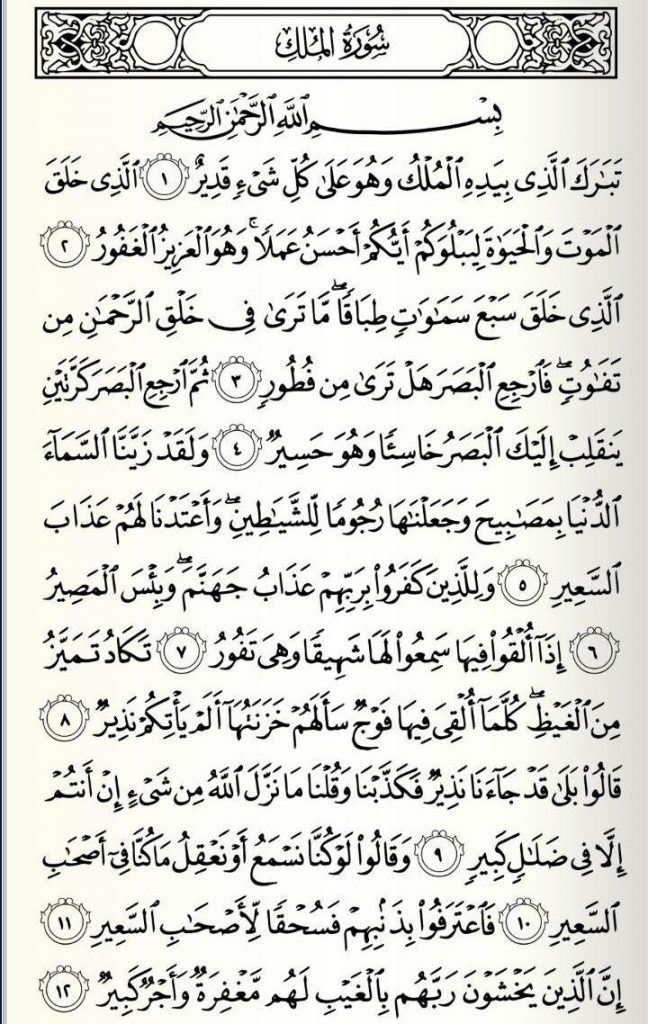 سُورَةُ الْمُلْكِ
بِسْمِ اللَّهِ الرَّحْمَٰنِ الرَّحِيمِ
تَبَارَكَ الَّذِي بِيَدِهِ الْمُلْكُ وَهُوَ عَلَىٰ كُلِّ شَيْءٍ قَدِيرٌ ١ الَّذِي خَلَقَ
الْمَوْتَ وَالْحَيَوٰةَ لِيَبْلُوَكُمْ أَيُّكُمْ أَحْسَنُ عَمَلًا ۚ وَهُوَ الْعَزِيزُ الْغَفُورُ ٢
الَّذِي خَلَقَ سَبْعَ سَمَٰوَٰتٍ طِبَاقًا ۖ مَّا تَرَىٰ فِي خَلْقِ الرَّحْمَٰنِ مِن
تَفَٰوُتٍ ۖ فَارْجِعِ الْبَصَرَ هَلْ تَرَىٰ مِن فُطُورٍ ٣ ثُمَّ ارْجِعِ الْبَصَرَ كَرَّتَيْنِ
يَنقَلِبْ إِلَيْكَ الْبَصَرُ خَاسِئًا وَهُوَ حَسِيرٌ ٤ وَلَقَدْ زَيَّنَّا السَّمَآءَ
الدُّنْيَا بِمَصَٰبِيحَ وَجَعَلْنَٰهَا رُجُومًا لِّلشَّيَٰطِينِ ۖ وَأَعْتَدْنَا لَهُمْ عَذَابَ
السَّعِيرِ ٥ وَلِلَّذِينَ كَفَرُوا۟ بِرَبِّهِمْ عَذَابُ جَهَنَّمَ ۖ وَبِئْسَ الْمَصِيرُ
٦ إِذَآ أُلْقُوا۟ فِيهَا سَمِعُوا۟ لَهَا شَهِيقًا وَهِيَ تَفُورُ ٧ تَكَادُ تَمَيَّزُ
مِنَ الْغَيْظِ ۖ كُلَّمَآ أُلْقِيَ فِيهَا فَوْجٌ سَأَلَهُمْ خَزَنَتُهَآ أَلَمْ يَأْتِكُمْ نَذِيرٌ ٨
قَالُوا۟ بَلَىٰ قَدْ جَآءَنَا نَذِيرٌ فَكَذَّبْنَا وَقُلْنَا مَا نَزَّلَ اللَّهُ مِن شَيْءٍ إِنْ أَنتُمْ
إِلَّا فِي ضَلَٰلٍ كَبِيرٍ ٩ وَقَالُوا۟ لَوْ كُنَّا نَسْمَعُ أَوْ نَعْقِلُ مَا كُنَّا فِيٓ أَصْحَٰبِ
السَّعِيرِ ١٠ فَاعْتَرَفُوا۟ بِذَنۢبِهِمْ فَسُحْقًا لِّأَصْحَٰبِ السَّعِيرِ ١١
إِنَّ الَّذِينَ يَخْشَوْنَ رَبَّهُم بِالْغَيْبِ لَهُم مَّغْفِرَةٌ وَأَجْرٌ كَبِيرٌ ١٢